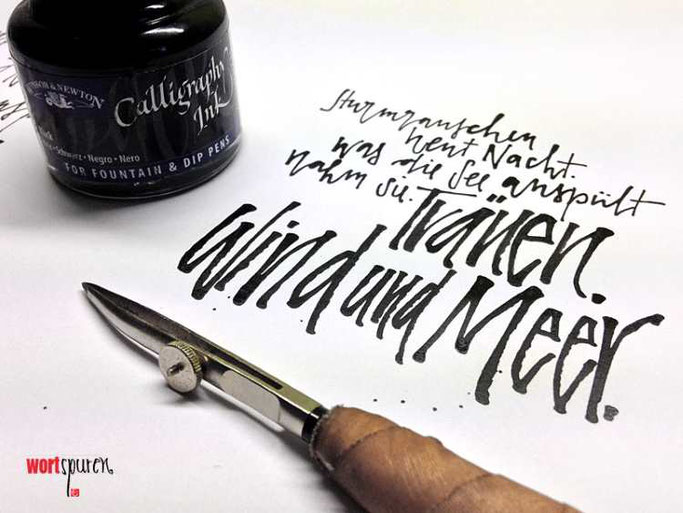 WINSOR & NEWTON
Calligraphy
Ink
Schwarz • Negro • Nero
FOR FOUNTAIN & DIP PENS
Sturmrauschen
heut Nacht.
was die See anspült
nahm sie. Tränen.
Wind und Meer.
wortspuren.